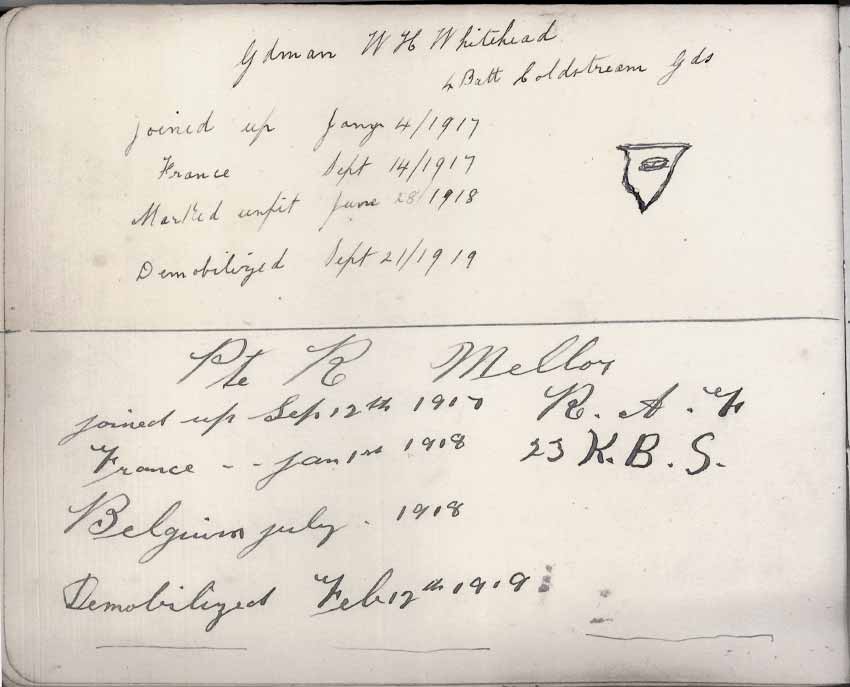 Gdman W H Whitehead
4 Batt Coldstream Gds
joined up Jany 4/1917
France Sept 14/1917
Marked unfit June 28/1918
Demobilized Sept 21/1919
Pte R Mellor
joined up Sep 12th 1917 R. A. F
France - - Jan 1st 1918 23 K. B. S.
Belgium july. 1918
Demobilized Feb 12th 1919